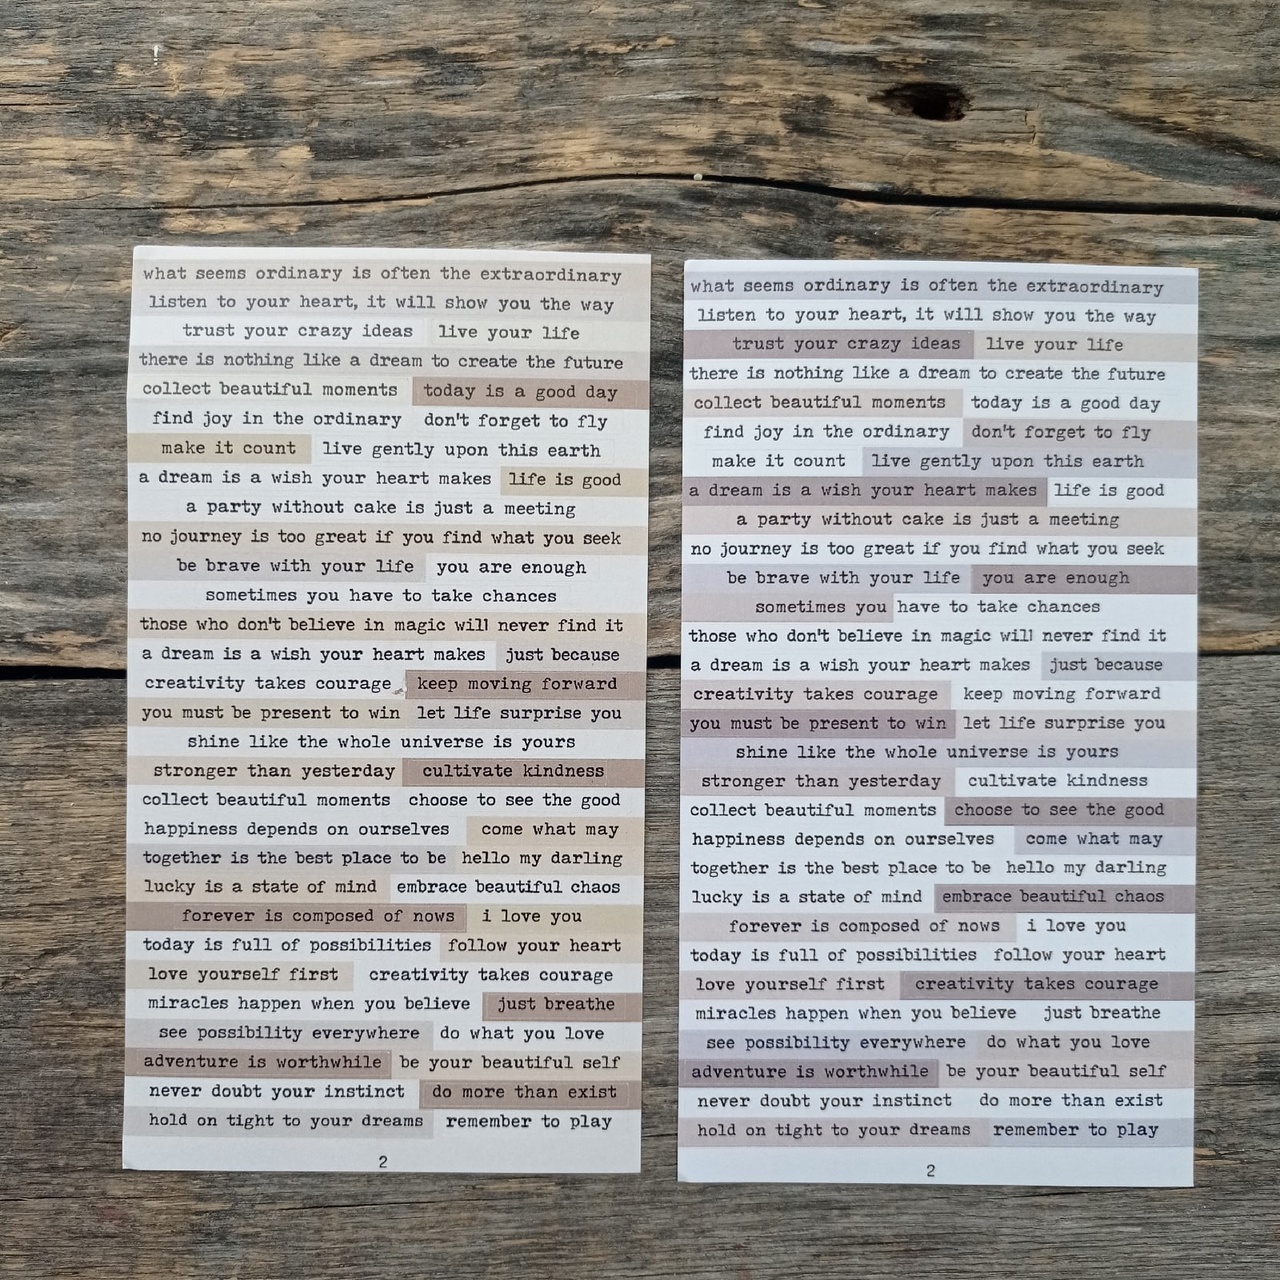 what seems ordinary is often the extraordinary
listen to your heart, it will show you the way
trust your crazy ideas live your life
there is nothing like a dream to create the future
collect beautiful moments today is a good day
find joy in the ordinary don't forget to fly
make it count live gently upon this earth
a dream is a wish your heart makes life is good
a party without cake is just a meeting
no journey is too great if you find what you seek
be brave with your life you are enough
sometimes you have to take chances
those who don't believe in magic will never find it
a dream is a wish your heart makes just because
creativity takes courage keep moving forward
you must be present to win let life surprise you
shine like the whole universe is yours
stronger than yesterday cultivate kindness
collect beautiful moments choose to see the good
happiness depends on ourselves come what may
together is the best place to be hello my darling
lucky is a state of mind embrace beautiful chaos
forever is composed of nows i love you
today is full of possibilities follow your heart
love yourself first creativity takes courage
miracles happen when you believe just breathe
see possibility everywhere do what you love
adventure is worthwhile be your beautiful self
never doubt your instinct do more than exist
hold on tight to your dreams remember to play
2
what seems ordinary is often the extraordinary
listen to your heart, it will show you the way
trust your crazy ideas live your life
there is nothing like a dream to create the future
collect beautiful moments today is a good day
find joy in the ordinary don't forget to fly
make it count live gently upon this earth
a dream is a wish your heart makes life is good
a party without cake is just a meeting
no journey is too great if you find what you seek
be brave with your life you are enough
sometimes you have to take chances
those who don't believe in magic will never find it
a dream is a wish your heart makes just because
creativity takes courage keep moving forward
you must be present to win let life surprise you
shine like the whole universe is yours
stronger than yesterday cultivate kindness
collect beautiful moments choose to see the good
happiness depends on ourselves come what may
together is the best place to be hello my darling
lucky is a state of mind embrace beautiful chaos
forever is composed of nows i love you
today is full of possibilities follow your heart
love yourself first creativity takes courage
miracles happen when you believe just breathe
see possibility everywhere do what you love
adventure is worthwhile be your beautiful self
never doubt your instinct do more than exist
hold on tight to your dreams remember to play
2